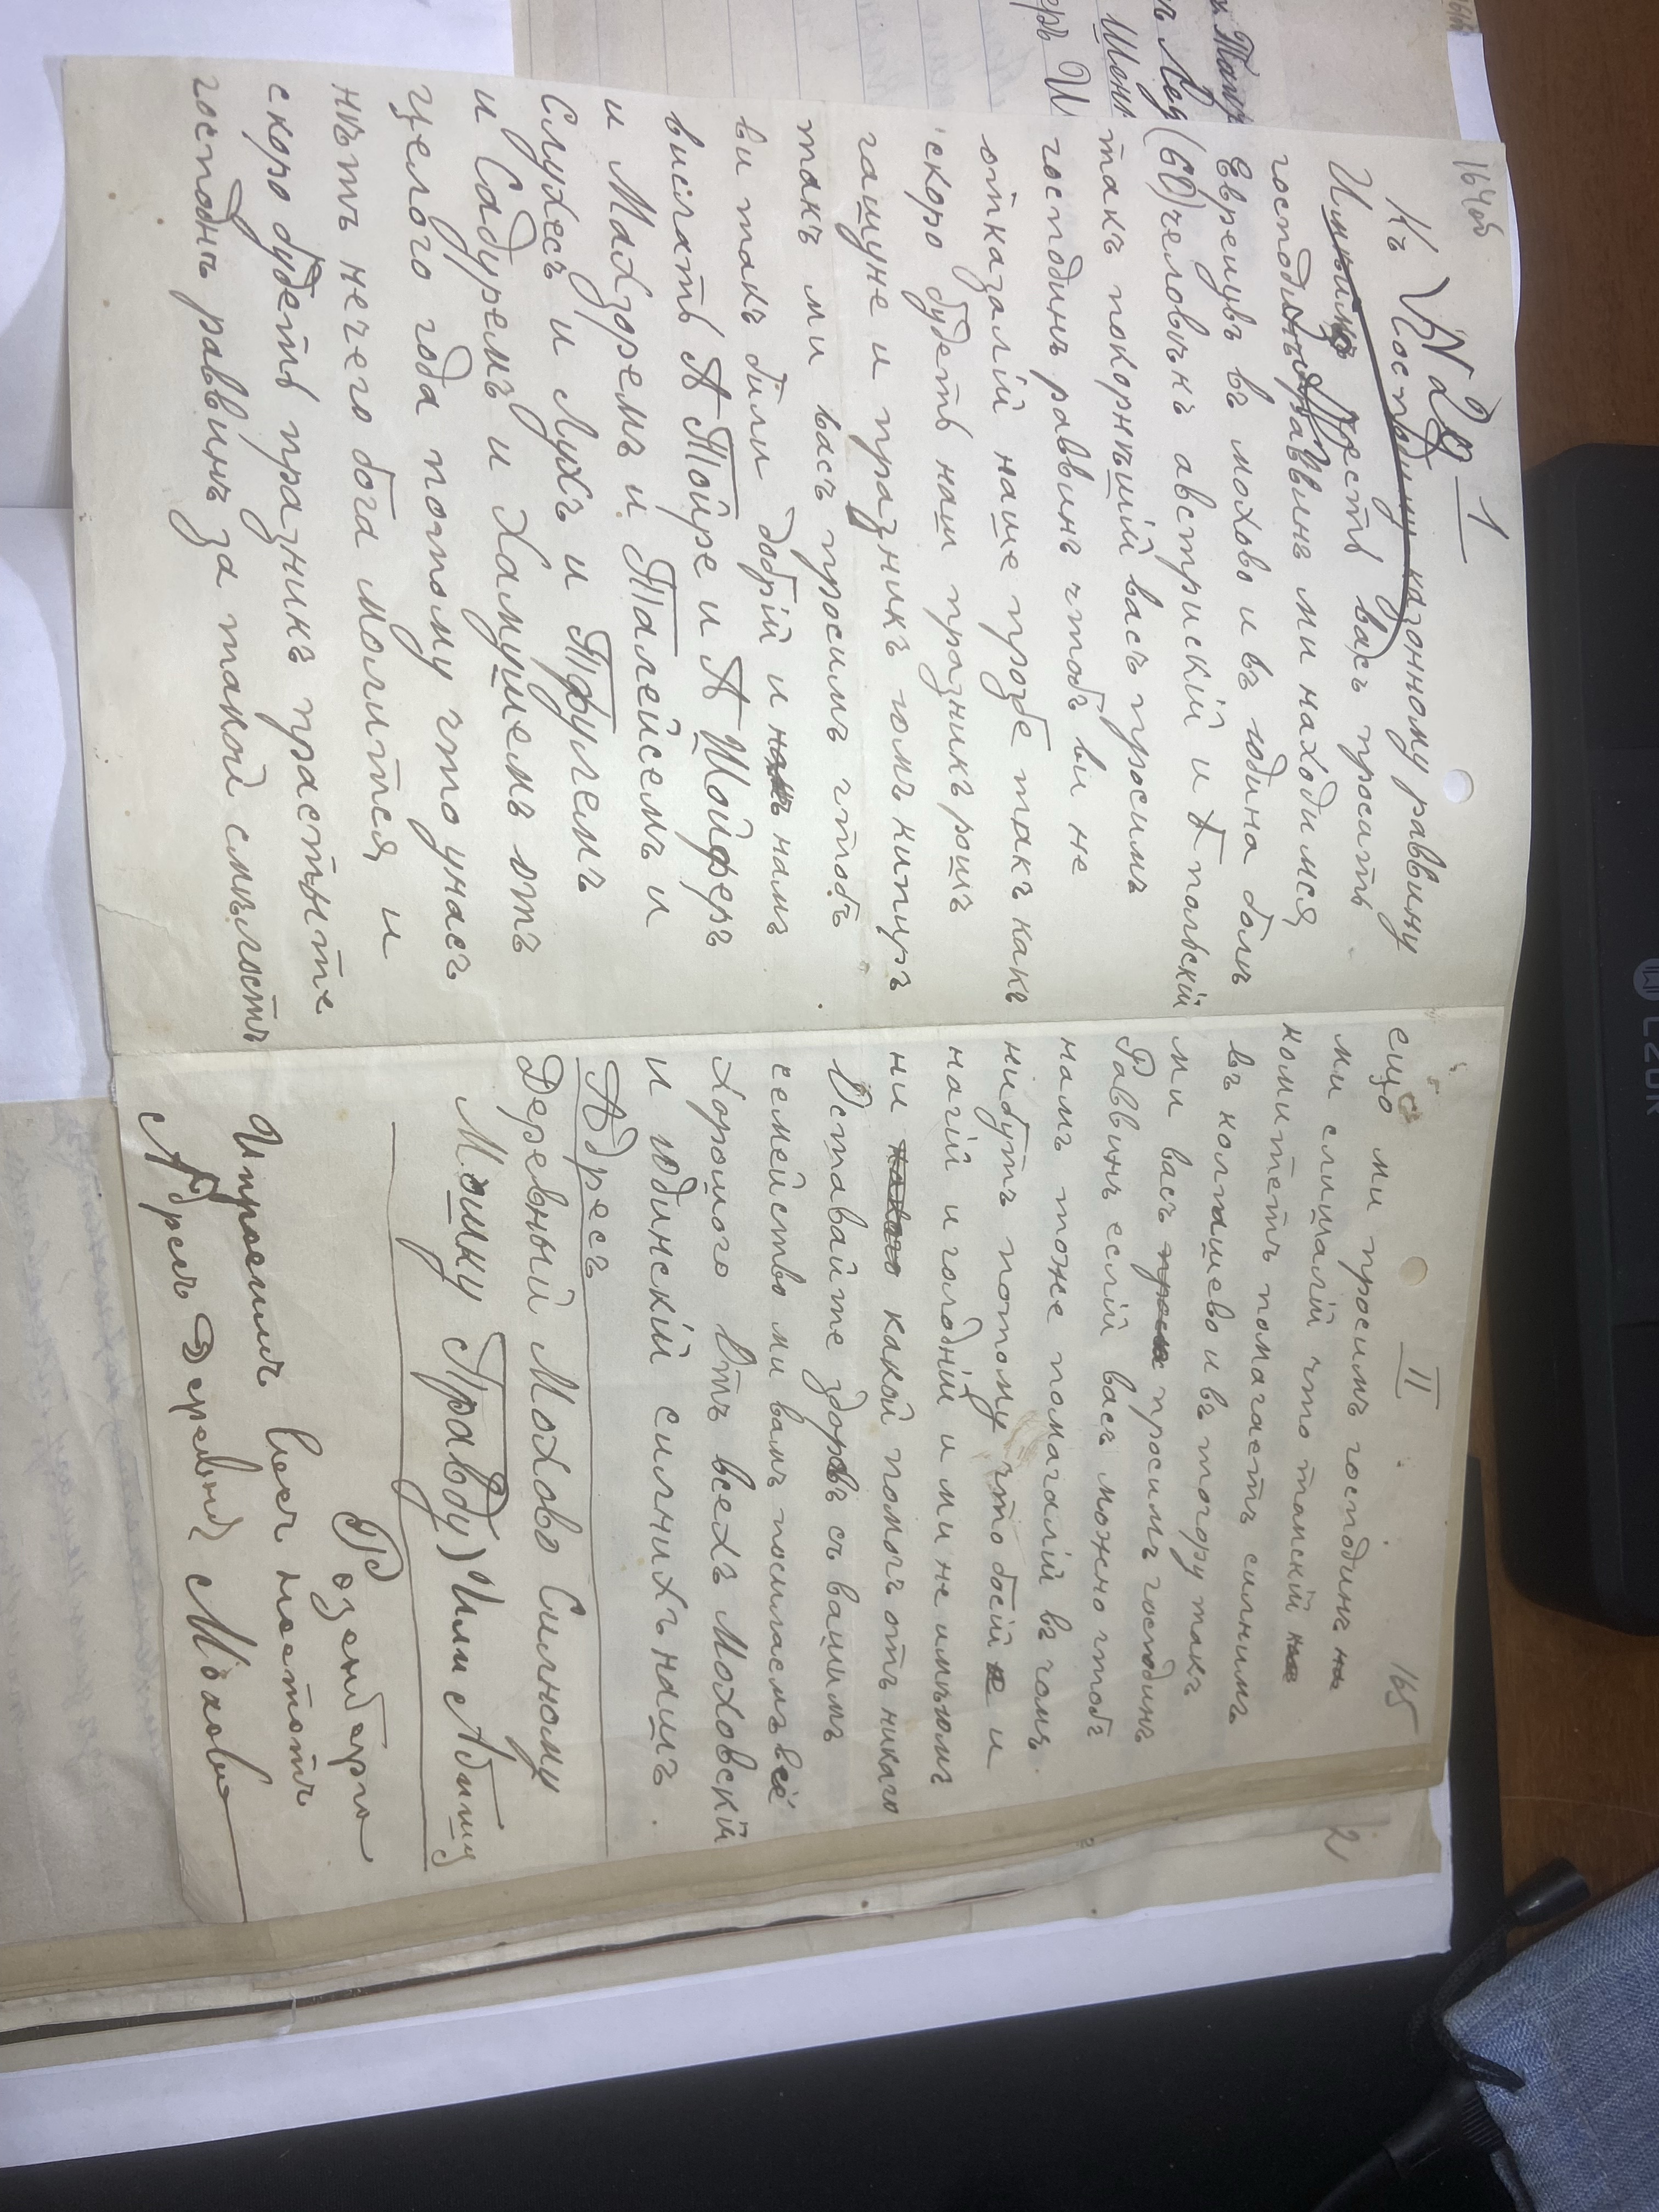 164об
1
Къ Господину казонному раввину
Имѣимъ честъ васъ просить
господинъ раввинъ ми находимся
Евреицвъ въ мохово и въ юдина болъ
(60) человѣкъ австрискій и польскій
такъ покорнѣшій васъ просимъ
господинъ раввинъ чтобъ ви не
отказалій наше прозбе такъ какъ
скоро будеть наш празникъ рошъ
гашуне и празникъ iомъ кипиръ
такъ ми васъ просимъ чтобъ
ви такъ били добрій и намъ
висілать А Тойре и А Шойферъ
и Махзоремъ и Талейсемъ и
Слухесъ и Лухъ и Трургемъ
и Садуремъ и Хамушемъ отъ
целого года потому что унасъ
нѣтъ нечего бога молится и
скоро будеть празникъ прастыте
господнъ раввинъ за такой смѣлость
II
165
2
ещо ми просимъ господинъ
ми слишалій что томскій
комитетъ помагаетъ силнимъ
въ колпашево и въ тогору такъ
ми васъ просимъ господинъ
Раввинъ еслій васъ можно чтобъ
намъ тоже помагалій въ чомъ
нибутъ потому что боій и
нагій и голодній и ми не имѣомъ
ни какой помочъ отъ никаго
Оставайте здоровъ съ вашимъ
семейство ми вамъ посилаемъ всё
хорошого Отъ всехъ Моховскій
и юдинскій силнихъ нашъ
Адресъ
Деревный Мохово Силному
Мошку Правду) Или Абиша
Розенберга
И просимъ восъ
Адресъ Деревня Мохово
EZOR